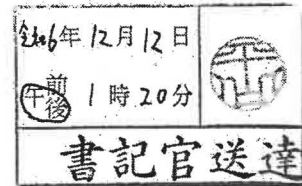 令和6年12月12日
午前後 1時20分
書記官送達